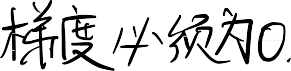 梯度必须为0.